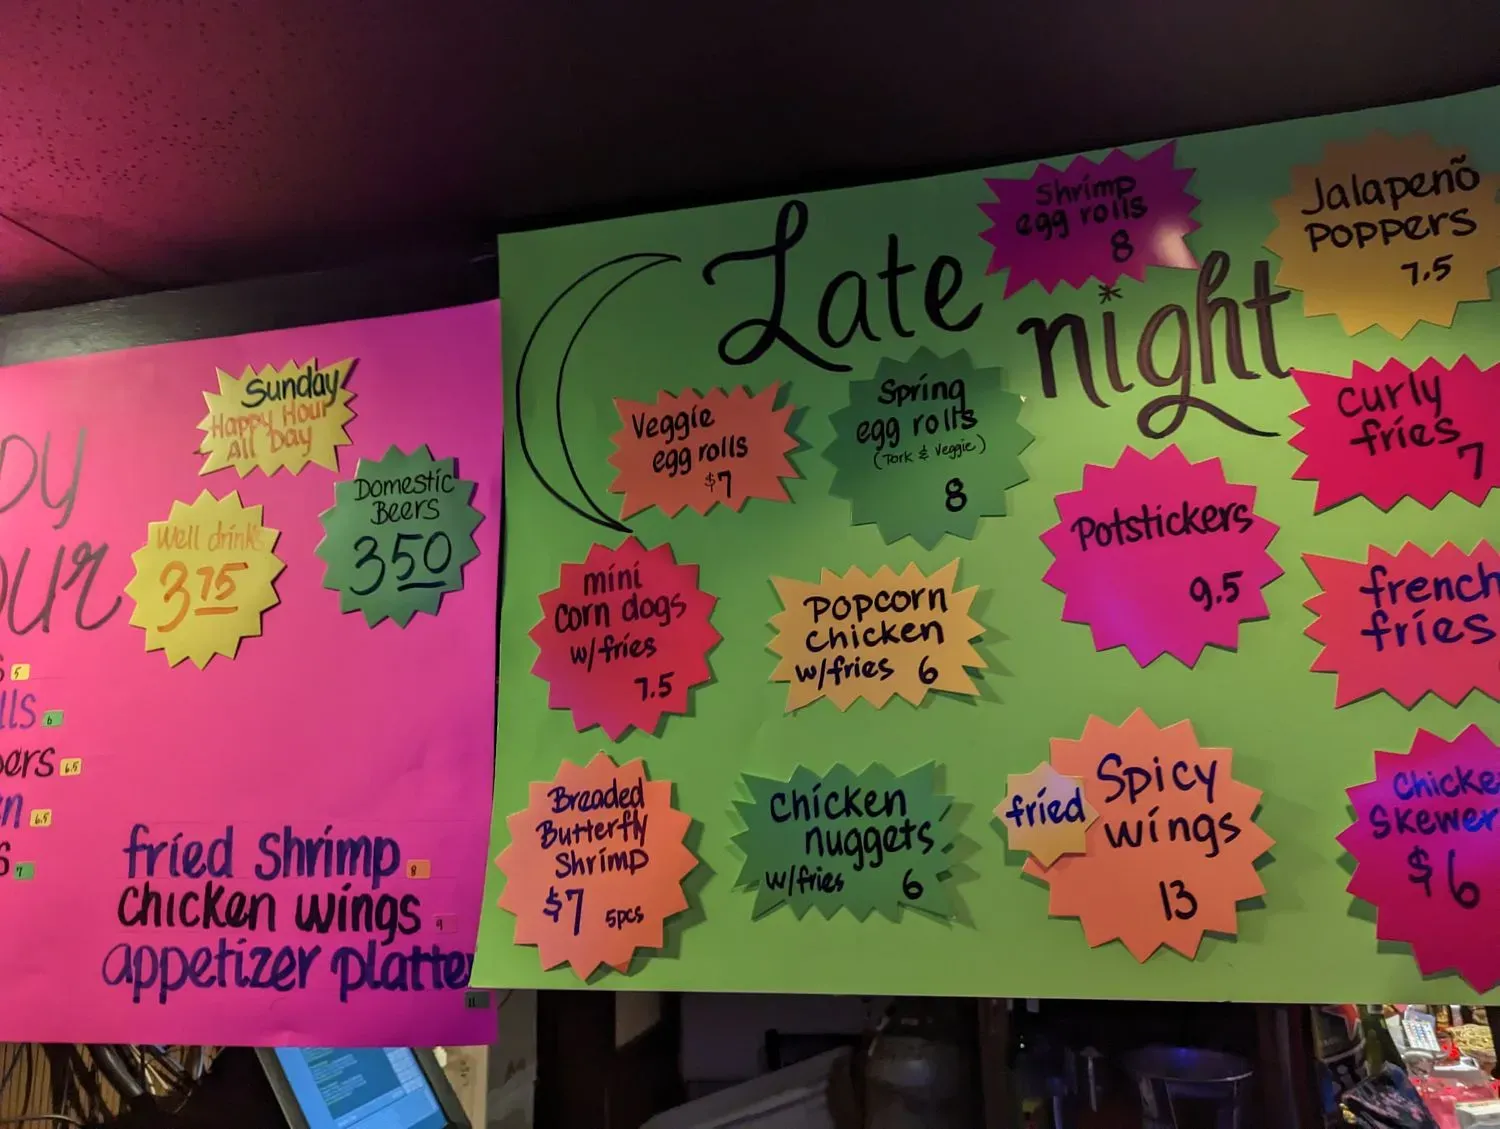 Sunday
Happy Hour
All Day
Well drinks
3 75
Domestic
Beers
3 50
5
6
6.5
6.5
7
fried Shrimp 8
chicken wings 9
appetizer platter
11
Late night
Shrimp
egg rolls
8
Jalapeño
Poppers
7.5
Veggie
egg rolls
$7
Spring
egg rolls
(Pork & Veggie)
8
Curly
fries
7
Potstickers
9.5
mini
corn dogs
w/fries
7.5
Popcorn
chicken
w/fries 6
french
fries
Breaded
Butterfly
Shrimp
$7 5pcs
Chicken
nuggets
w/fries 6
fried
Spicy
wings
13
Chicke
Skewer
$6